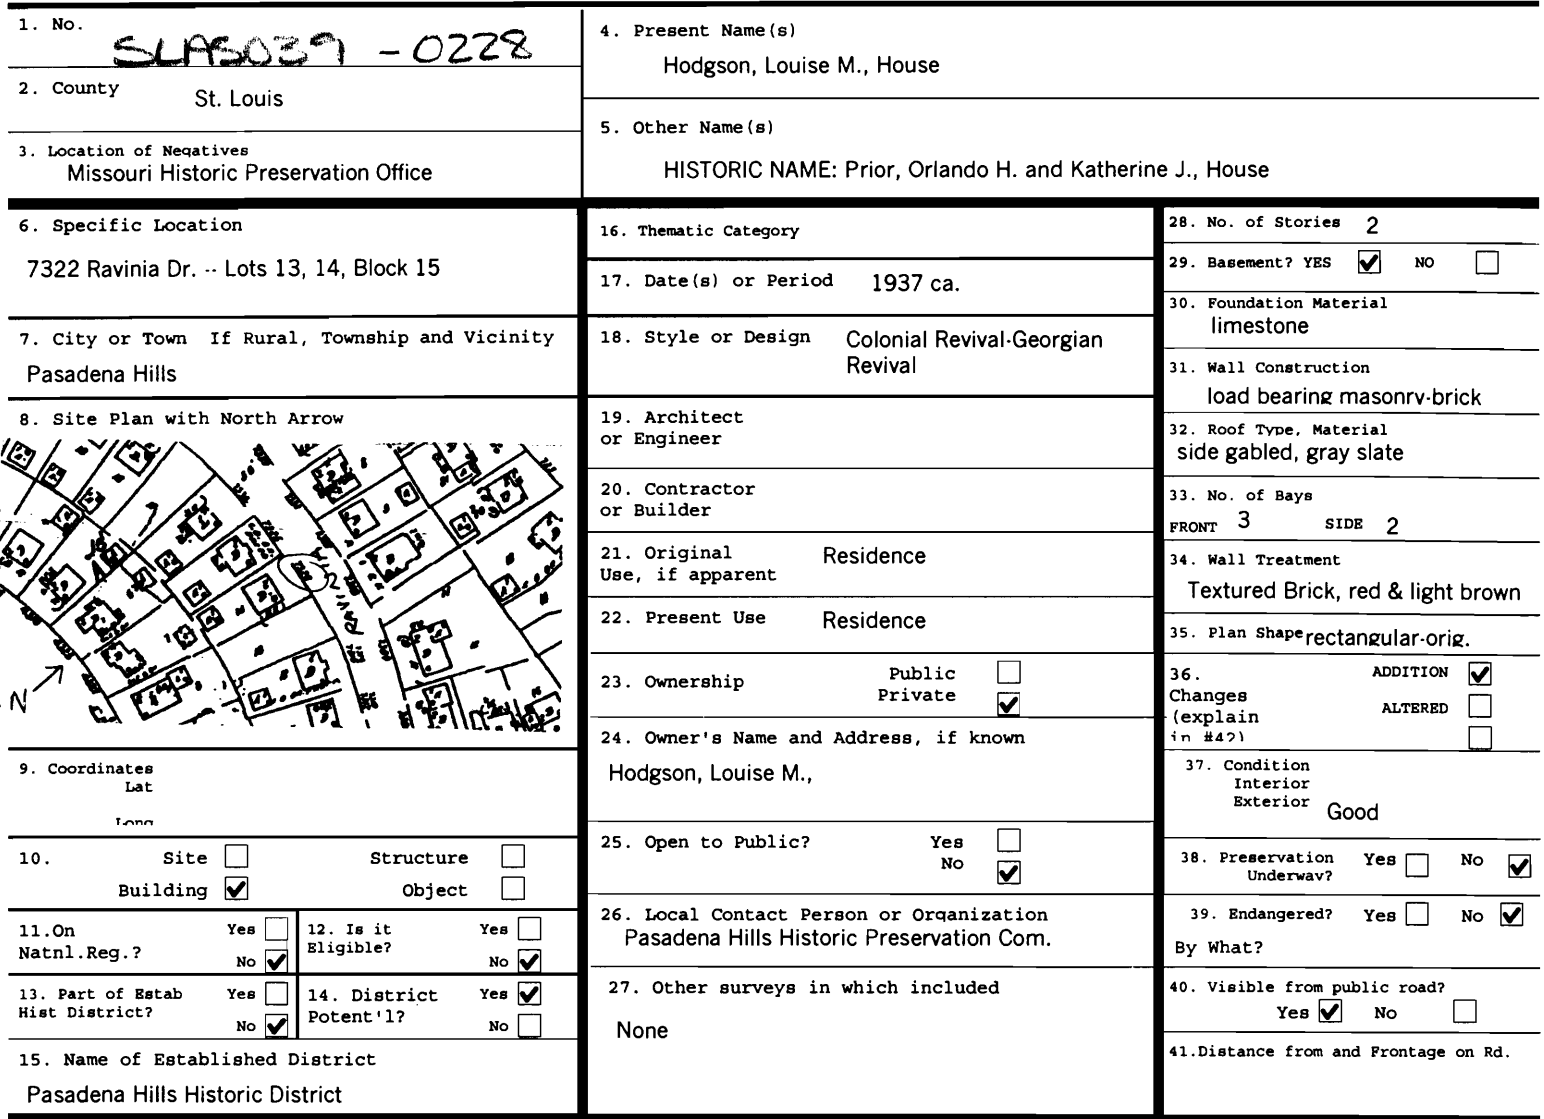 1. No.
SLAS039 -0228
2. County
St. Louis
3. Location of Negatives
Missouri Historic Preservation Office
4. Present Name(s)
Hodgson, Louise M., House
5. Other Name(s)
HISTORIC NAME: Prior, Orlando H. and Katherine J., House
6. Specific Location
7322 Ravinia Dr. -- Lots 13, 14, Block 15
7. City or Town If Rural, Township and Vicinity
Pasadena Hills
8. Site Plan with North Arrow
N
9. Coordinates
Lat
Long
10. Site Structure
Building Object
11.On Yes
Natnl.Reg.? No
12. Is it Yes
Eligible? No
13. Part of Estab Yes
Hist District? No
14. District Yes
Potent'l? No
15. Name of Established District
Pasadena Hills Historic District
16. Thematic Category
17. Date(s) or Period 1937 ca.
18. Style or Design Colonial Revival-Georgian
Revival
19. Architect
or Engineer
20. Contractor
or Builder
21. Original Residence
Use, if apparent
22. Present Use Residence
23. Ownership Public
Private
24. Owner's Name and Address, if known
Hodgson, Louise M.,
25. Open to Public? Yes
No
26. Local Contact Person or Organization
Pasadena Hills Historic Preservation Com.
27. Other surveys in which included
None
28. No. of Stories 2
29. Basement? YES NO
30. Foundation Material
limestone
31. Wall Construction
load bearing masonry-brick
32. Roof Type, Material
side gabled, gray slate
33. No. of Bays
FRONT 3 SIDE 2
34. Wall Treatment
Textured Brick, red & light brown
35. Plan Shape rectangular-orig.
36. ADDITION
Changes
(explain ALTERED
in #42)
37. Condition
Interior
Exterior Good
38. Preservation Yes No
Underway?
39. Endangered? Yes No
By What?
40. Visible from public road?
Yes No
41.Distance from and Frontage on Rd.